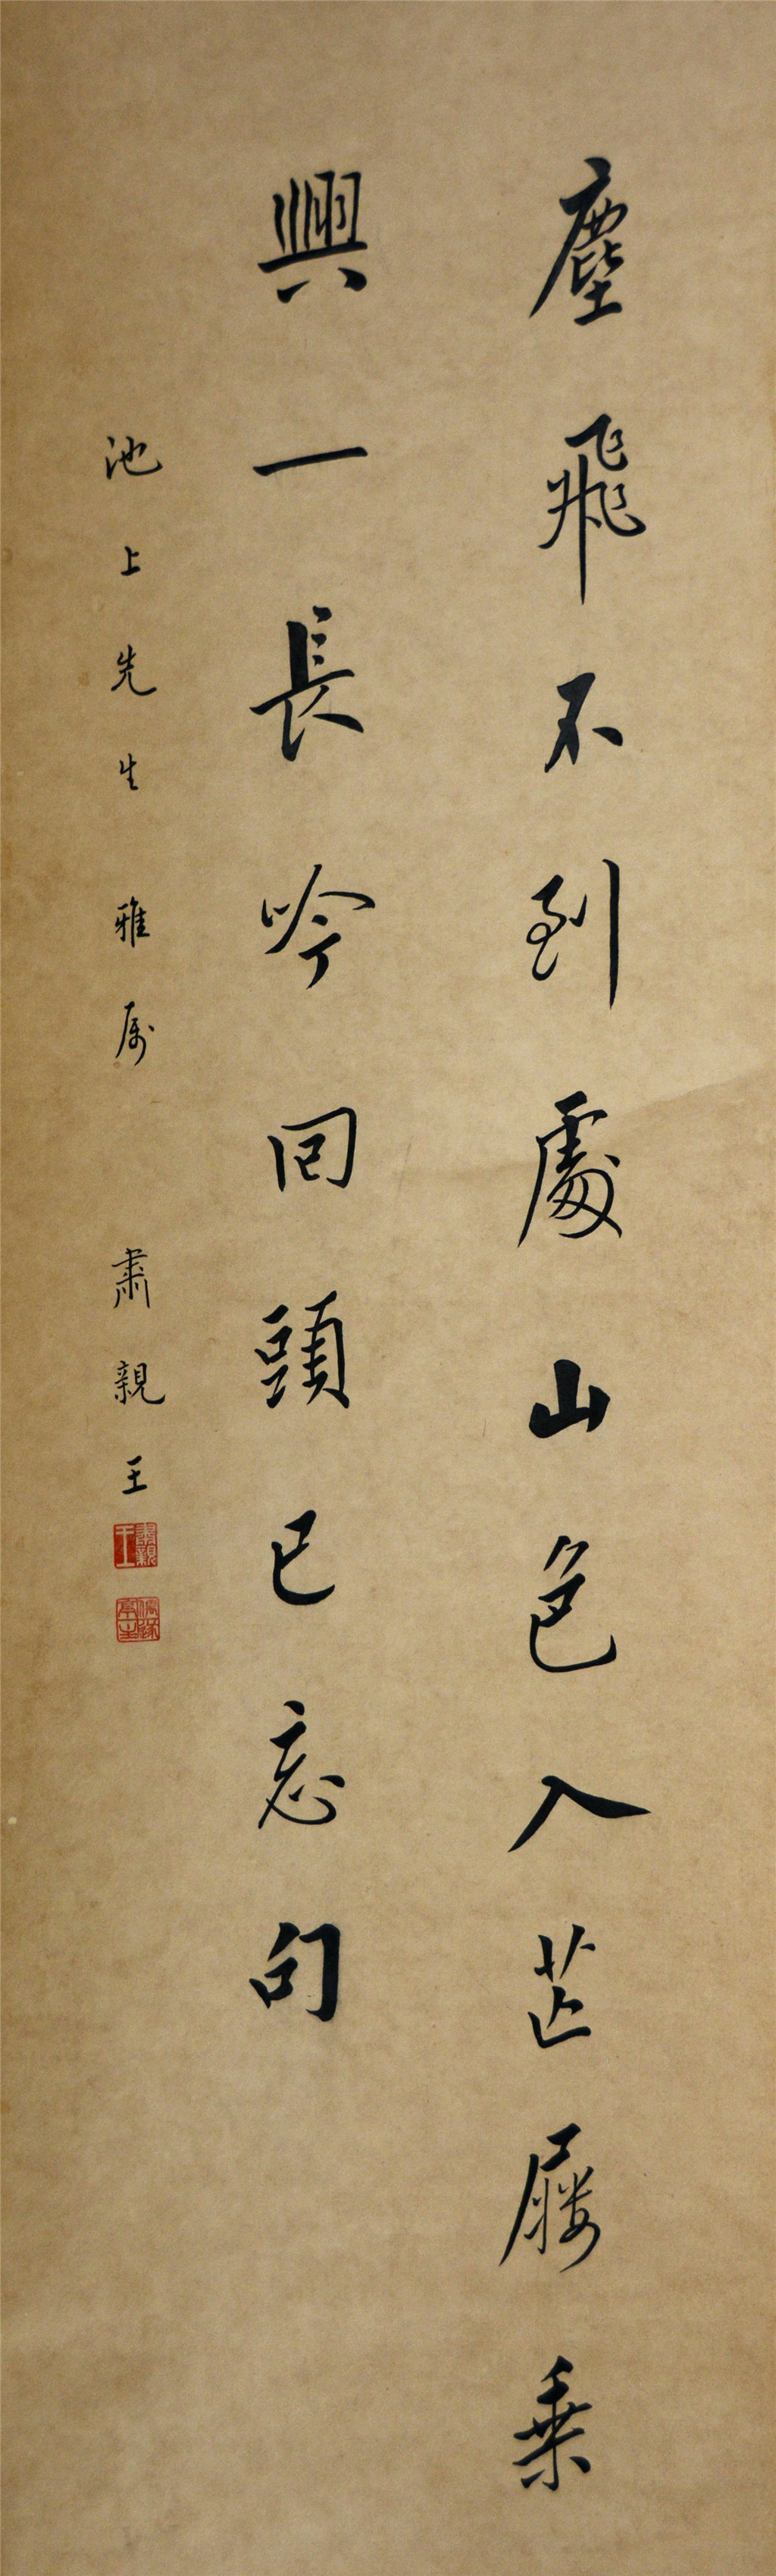 塵飛不到處山色入芒屨乗
興一長吟回頭已忘句
池上先生 雅属 肅親王